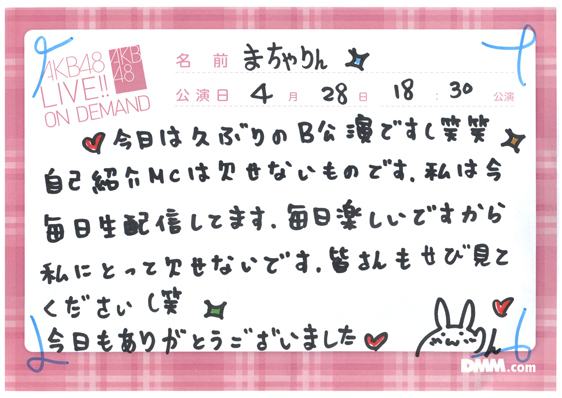 AKB48
LIVE!!
ON DEMAND
AKB
48
名前 まちゃりん
公演日 4月28日 18:30公演
今日は久ぶりのB公演です(笑笑
自己紹介MCは欠せないものです.私は今
毎日生配信してます.毎日楽しいですから
私にとって欠せないです.皆さんもせび見て
ください(笑
今日もありがとうございました
りん
DMM.com